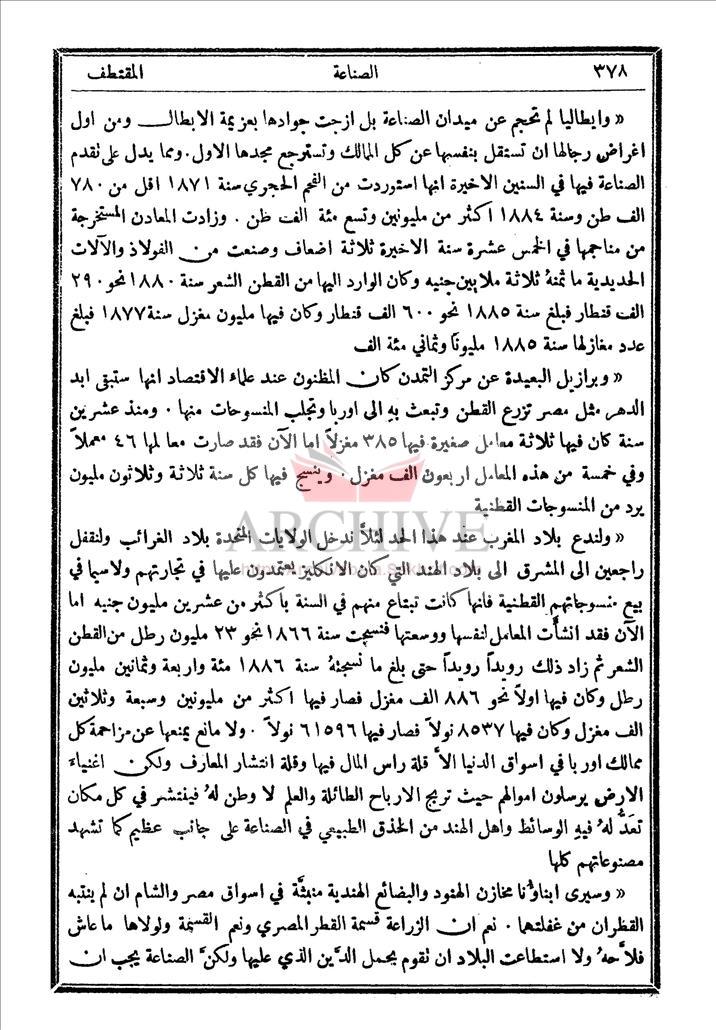 ٣٧٨ الصناعة المقتطف
« وايطاليا لم تحجم عن ميدان الصناعة بل ازجت جوادها بعزيمة الابطال ومن اول
اغراض رجالها ان تستقل بنفسها عن كل الممالك وتسترجع مجدها الاول. ومما يدل على تقدم
الصناعة فيها في السنين الاخيرة انها استوردت من الفحم الحجري سنة ١٨٧١ اقل من ٧٨٠
الف طن وسنة ١٨٨٤ اكثر من مليونين وتسع مئة الف طن . وزادت المعادن المستخرجة
من مناجمها في الخمس عشرة سنة الاخيرة ثلاثة اضعاف وصنعت من الفولاذ والآلات
الحديدية ما ثمنهُ ثلاثة ملايين جنيه وكان الوارد اليها من القطن الشعر سنة ١٨٨٠ نحو ٢٩٠
الف قنطار فبلغ سنة ١٨٨٥ نحو ٦٠٠ الف قنطار وكان فيها مليون مغزل سنة ١٨٧٧ فبلغ
عدد مغازلها سنة ١٨٨٥ مليونًا وثماني مئة الف
« وبرازيل البعيدة عن مركز التمدن كان المظنون عند علماء الاقتصاد انها ستبقى ابد
الدهر مثل مصر تزرع القطن وتبعث بهِ الى اوربا وتجلب المنسوجات منها . ومنذ عشرين
سنة كان فيها ثلاثة معامل صغيرة فيها ٣٨٥ مغزلاً اما الآن فقد صارت معاملها ٤٦ معملاً
وفي خمسة من هذه المعامل اربعون الف مغزل . وينسج فيها كل سنة ثلاثة وثلاثون مليون
يرد من المنسوجات القطنية
« ولندع بلاد المغرب عند هذا الحد لئلاَّ ندخل الولايات المتحدة بلاد الغرائب ولنقفل
راجعين الى المشرق الى بلاد الهند التي كان الانكليز يعتمدون عليها في تجارتهم ولاسيما في
بيع منسوجاتهم القطنية فانها كانت تبتاع منهم في السنة باكثر من عشرين مليون جنيه اما
الآن فقد انشأت المعامل لنفسها ووسعتها فنسجت سنة ١٨٦٦ نحو ٢٣ مليون رطل من القطن
الشعر ثم زاد ذلك رويداً رويداً حتى بلغ ما نسجتهُ سنة ١٨٨٦ مئة واربعة وثمانين مليون
رطل وكان فيها اولاً نحو ٨٨٦ الف مغزل فصار فيها اكثر من مليونين وسبعة وثلاثين
الف مغزل وكان فيها ٨٥٣٧ نولاً فصار فيها ٦١٥٩٦ نولاً . ولا مانع يمنعها عن مزاحمة كل
ممالك اوربا في اسواق الدنيا الاَّ قلة راس المال فيها وقلة انتشار المعارف ولكن اغنياء
الارض يرسلون اموالهم حيث تربح الارباح الطائلة والعلم لا وطن لهُ فينتشر في كل مكان
تعَدُّ لهُ فيهِ الوسائط واهل الهند من الحذق الطبيعي في الصناعة على جانب عظيم كما تشهد
مصنوعاتهم كلها
« وسيرى ابناؤُنا مخازن الهنود والبضائع الهندية منبثَّة في اسواق مصر والشام ان لم ينتبه
القطران من غفلتها . نعم ان الزراعة قسمة القطر المصري ونعم القسمة ولولاها ما عاش
فلاَّحهُ ولا استطاعت البلاد ان تقوم بحمل الدَّين الذي عليها ولكنَّ الصناعة يجب ان
ARCHIVE